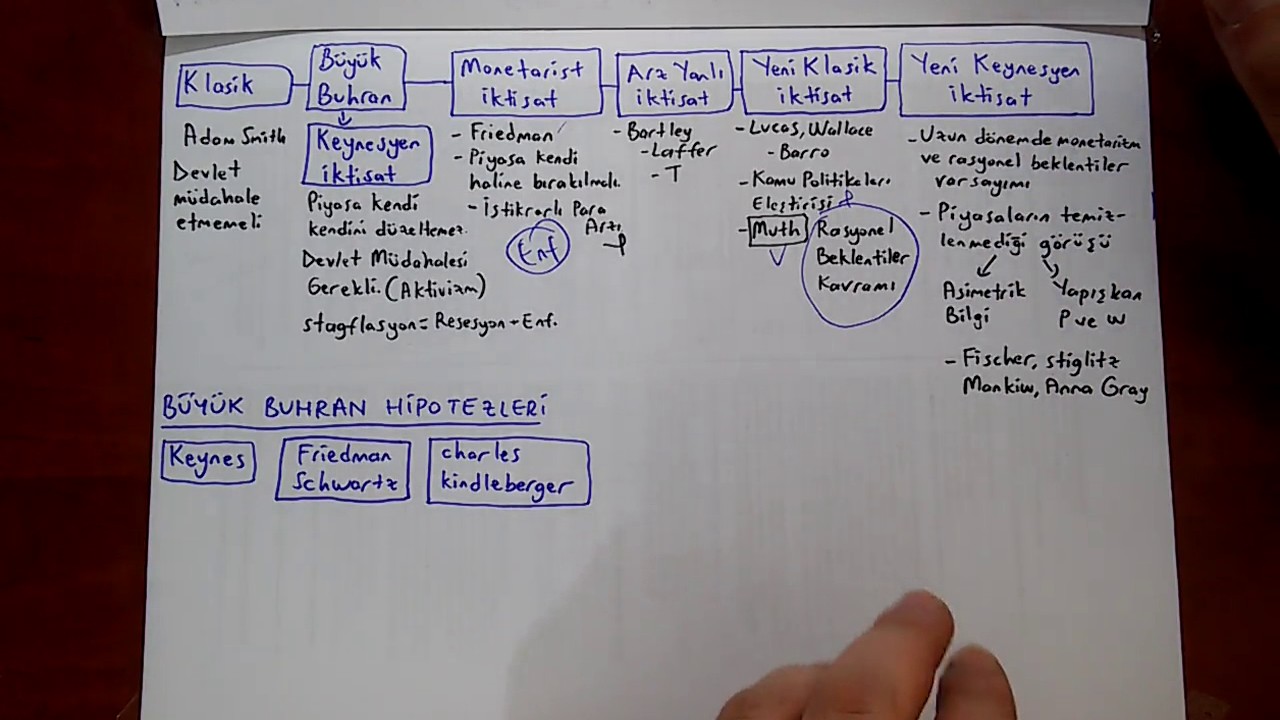 Klasik
Adam Smith
Devlet
müdahale
etmemeli
Büyük
Buhran
Keynesyen
iktisat
Piyasa kendi
kendini düzeltemez.
Devlet Müdahalesi
Gerekli. (Aktivizm)
Stagflasyon = Resesyon + Enf.
Monetarist
iktisat
- Friedman
- Piyasa kendi
haline bırakılmalı.
- İstikrarlı Para
Artışı
Enf
Arz Yanlı
iktisat
- Bartley
- Laffer
- T
Yeni Klasik
iktisat
- Lucas, Wallace
- Barro
- Kamu Politikaları
Eleştirisi
- Muth Rasyonel
Beklentiler
Kavramı
Yeni Keynesyen
iktisat
- Uzun dönemde monetarizm
ve rasyonel beklentiler
varsayımı
- Piyasaların temiz-
lenmediği görüşü
Asimetrik
Bilgi
Yapışkan
P ve W
- Fischer, Stiglitz
Mankiw, Anna Gray
BÜYÜK BUHRAN HİPOTEZLERİ
Keynes
Friedman
Schwartz
Charles
kindleberger